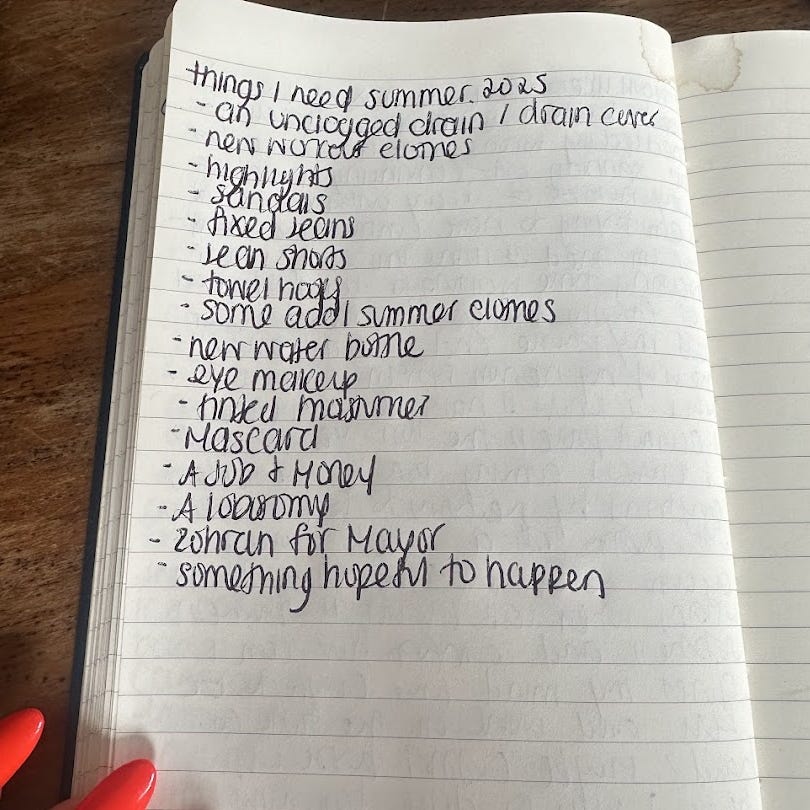 things I need summer 2025
- an unclogged drain / drain cover
- new workout clothes
- highlights
- sandals
- fixed jeans
- jean shorts
- towel hooks
- some add'l summer clothes
- new water bottle
- eye makeup
- tinted moisturizer
- Mascara
- A JOB & Money
- A lobotomy
- Zohran for Mayor
- something hopeful to happen